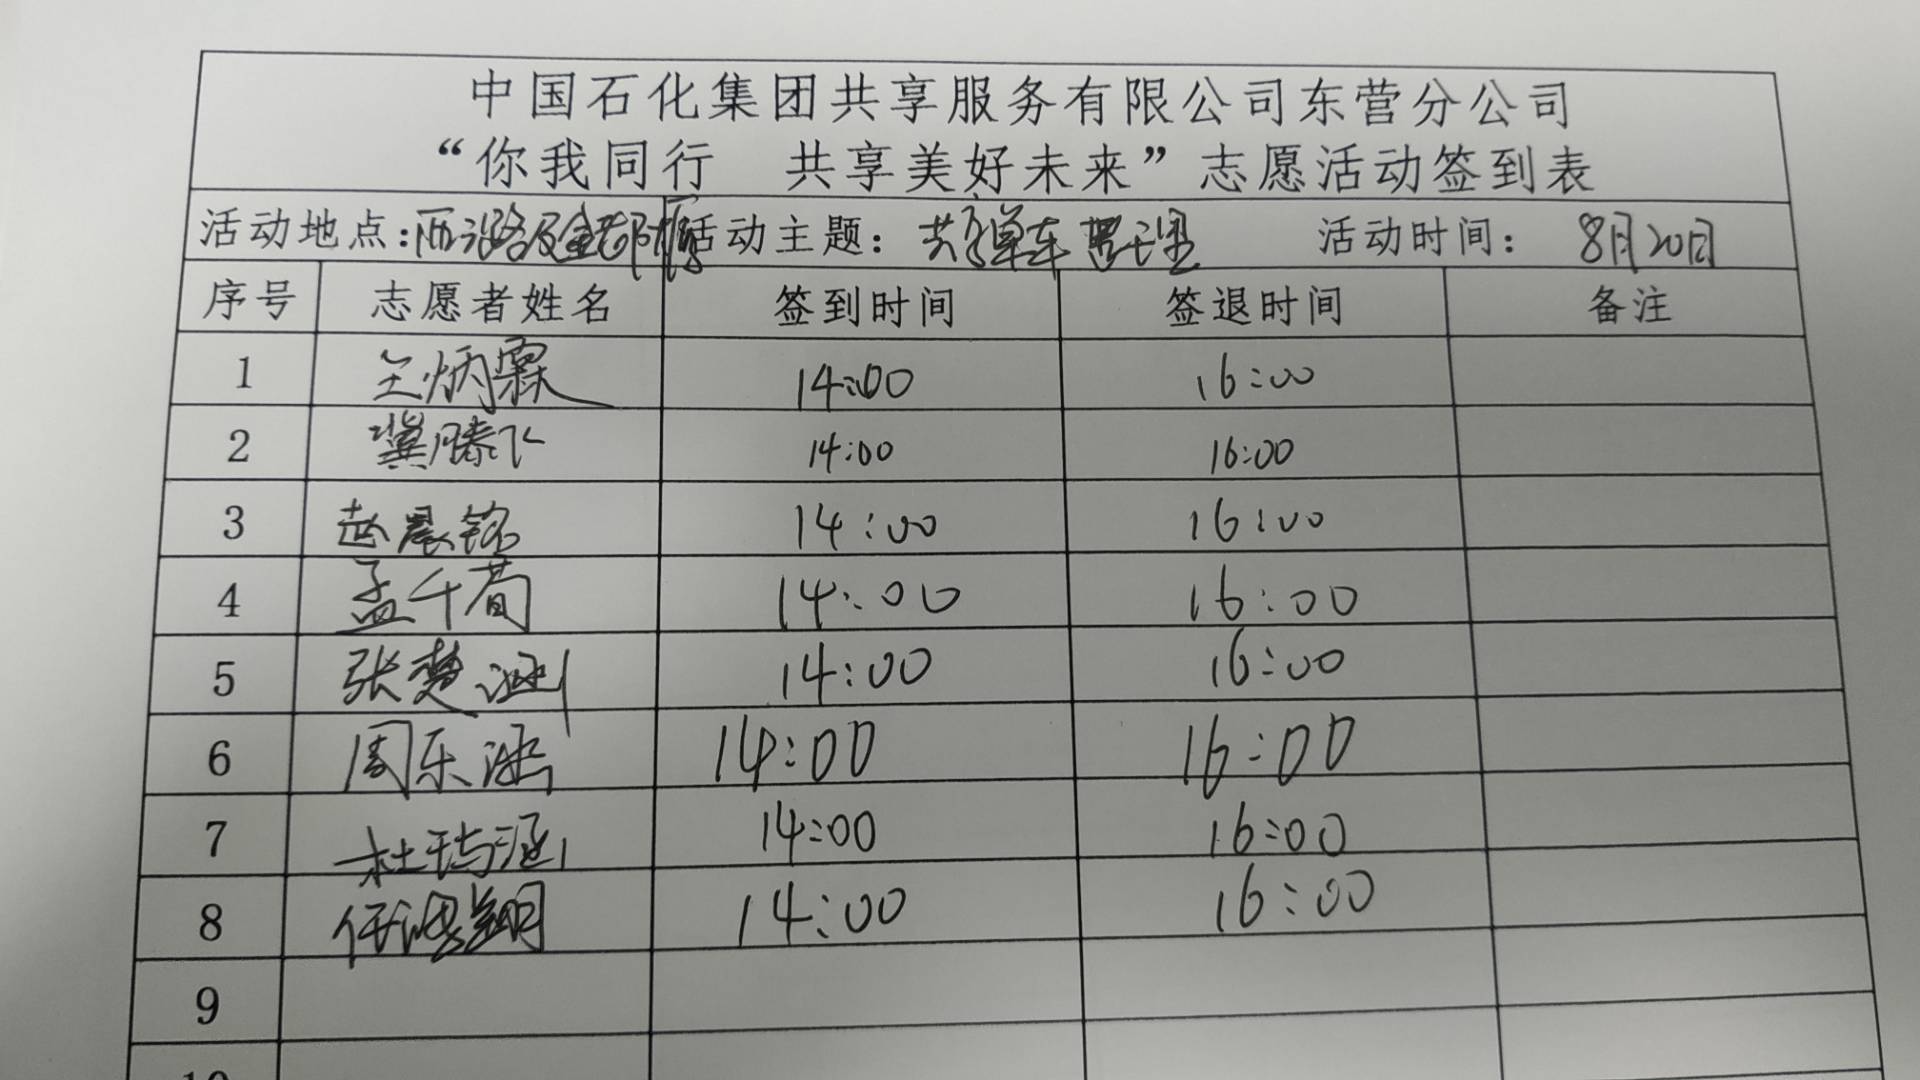 中国石化集团共享服务有限公司东营分公司
“你我同行 共享美好未来”志愿活动签到表
活动地点: 活动主题: 共享单车 活动时间: 8月20日
序号 志愿者姓名 签到时间 签退时间 备注
1 王炳霖 14:00 16:00
2 冀腾飞 14:00 16:00
3 赵晨铭 14:00 16:00
4 孟千荀 14:00 16:00
5 张楚涵 14:00 16:00
6 周乐涵 14:00 16:00
7 杜涵 14:00 16:00
8 任鸿翔 14:00 16:00
9
10